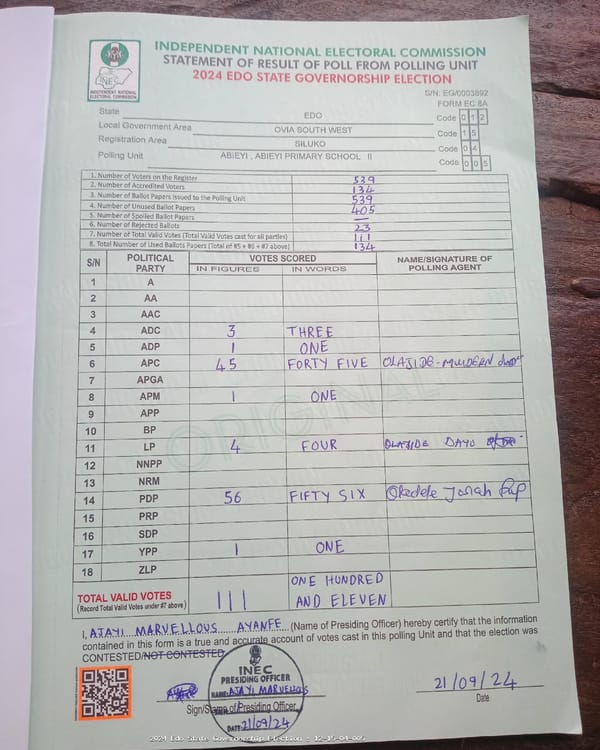 INDEPENDENT NATIONAL ELECTORAL COMMISSION
STATEMENT OF RESULT OF POLL FROM POLLING UNIT
2024 EDO STATE GOVERNORSHIP ELECTION
INEC
INDEPENDENT NATIONAL ELECTORAL COMMISSION
S/N: EG/0003892
FORM EC 8A
State EDO Code 012
Local Government Area OVIA SOUTH WEST Code 15
Registration Area SILUKO Code 04
Polling Unit ABIEYI , ABIEYI PRIMARY SCHOOL II Code 005
1. Number of Voters on the Register 539
2. Number of Accredited Voters 134
3. Number of Ballot Papers issued to the Polling Unit 539
4. Number of Unused Ballot Papers 405
5. Number of Spoiled Ballot Papers —
6. Number of Rejected Ballots 23
7. Number of Total Valid Votes (Total Valid Votes cast for all parties) 111
8. Total Number of Used Ballots Papers (Total of #5 + #6 + #7 above) 134
S/N POLITICAL PARTY VOTES SCORED NAME/SIGNATURE OF POLLING AGENT
IN FIGURES IN WORDS
1 A
2 AA
3 AAC
4 ADC 3 THREE
5 ADP 1 ONE
6 APC 45 FORTY FIVE OLAJIDE
7 APGA
8 APM 1 ONE
9 APP
10 BP
11 LP 4 FOUR OLAJIDE DAYO
12 NNPP
13 NRM
14 PDP 56 FIFTY SIX Josiah
15 PRP
16 SDP
17 YPP 1 ONE
18 ZLP
TOTAL VALID VOTES 111 ONE HUNDRED AND ELEVEN
(Record Total Valid Votes under #7 above)
ORIGINAL
I, AJAYI MARVELLOUS AYANFE (Name of Presiding Officer) hereby certify that the information
contained in this form is a true and accurate account of votes cast in this polling Unit and that the election was
CONTESTED/NOT CONTESTED
INEC
PRESIDING OFFICER
NAME: AJAYI MARVELLOUS
Sign/Stamp of Presiding Officer
DATE: 21/09/24
21/09/24
Date
2024 Edo State Governorship Election - 12-15-04-005